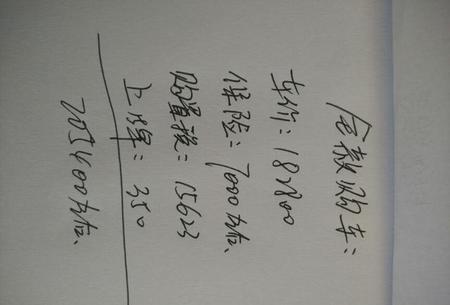 全款购车:
车价:182800
保险:7000左右、
购置税:15623
上牌:350
205400左右、